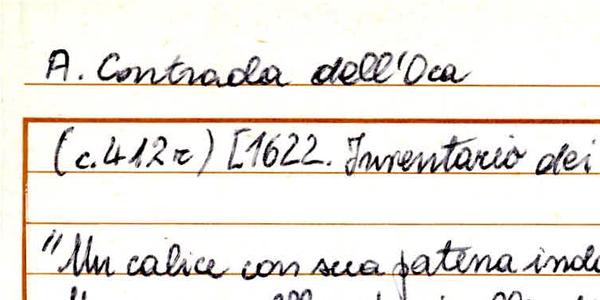 A. Contrada dell'Oca
(c.412r) [1622. Inventario dei
"Un calice con sua patena indo